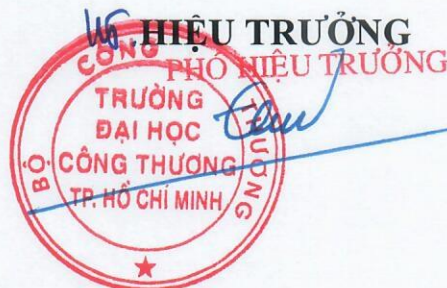 KT. HIỆU TRƯỞNG
PHÓ HIỆU TRƯỞNG
BỘ CÔNG THƯƠNG
TRƯỜNG
ĐẠI HỌC
CÔNG THƯƠNG
TP. HỒ CHÍ MINH